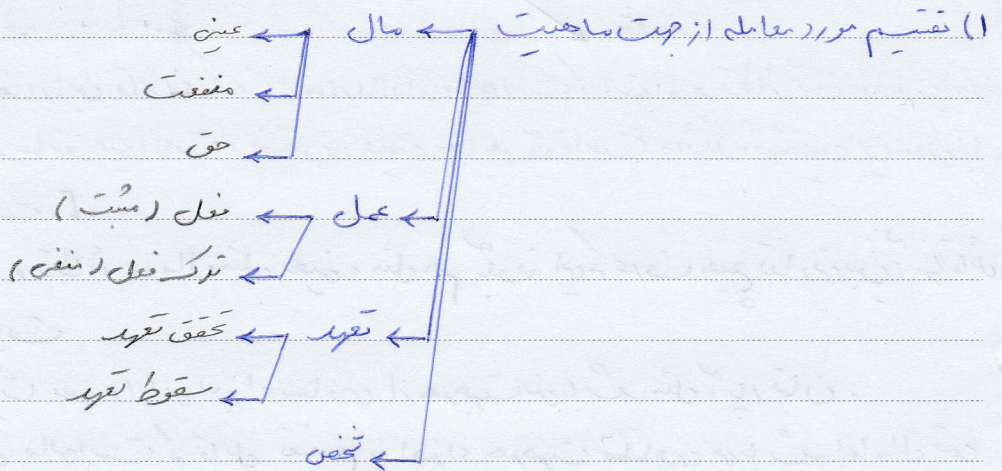 ۱) تقسیم مورد معامله از جهت ماهیت ← مال ← عین
← منفعت
← حق
← عمل ← فعل (مثبت)
← ترک فعل (منفی)
← تعهد ← تحقق تعهد
← سقوط تعهد
← شخص